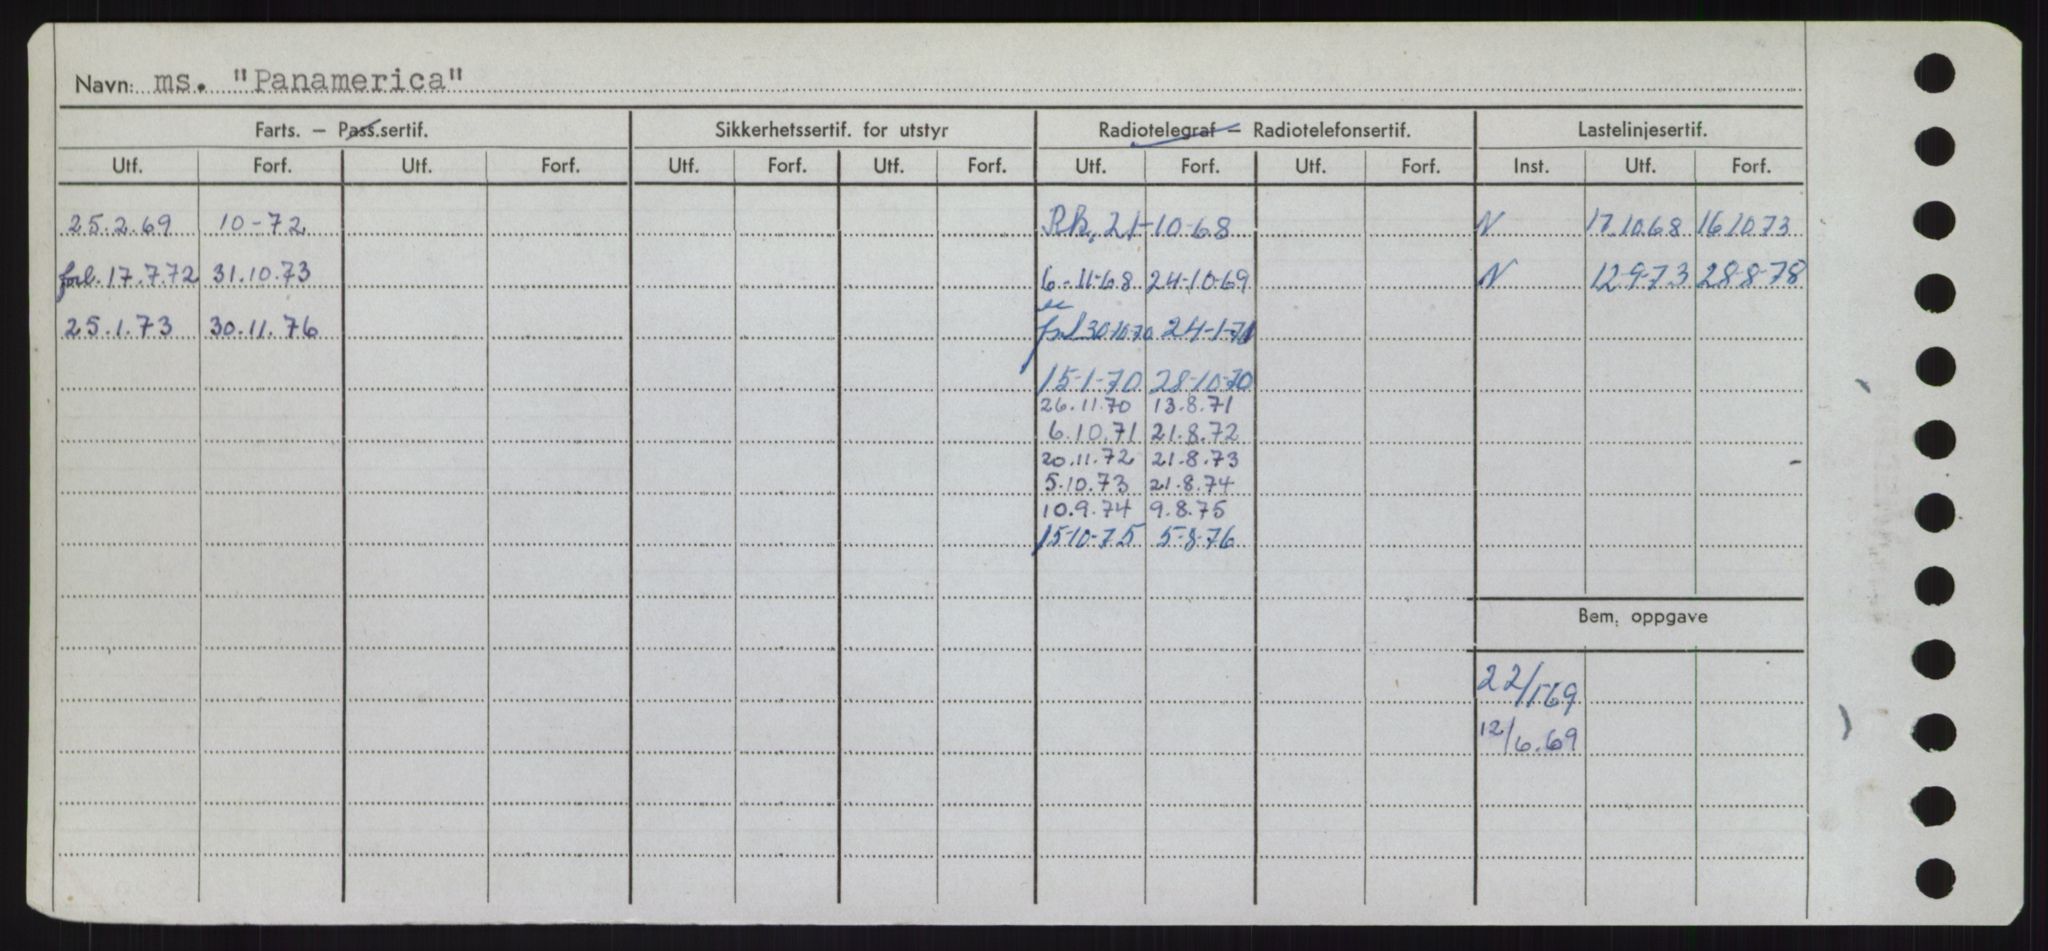 Navn: ms. "Panamerica"
Farts. – Pass.sertif. Sikkerhetssertif. for utstyr Radiotelegraf – Radiotelefonsertif. Lastelinjesertif.
Utf. Forf. Utf. Forf. Utf. Forf. Utf. Forf. Utf. Forf. Utf. Forf. Inst. Utf. Forf.
25.2.69 10-72 Rk. 21-10-68 N 17.10.68 16.10.73
forl. 17.7.72 31.10.73 6-11-68 24-10-69 N 12-9-73 28-8-78
25.1.73 30.11.76 30-10-70 24-1-71
15-1-70 28-10-70
26.11.70 13.8.71
6.10.71 21.8.72
20.11.72 21.8.73
5.10.73 21.8.74
10.9.74 9.8.75
15-10-75 5-8-76
Bem. oppgave
22/1 69
12/6.69